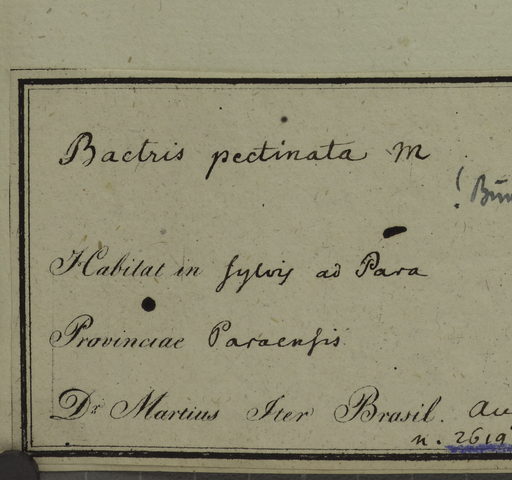 Bactris pectinata M
Habitat in sylvis ad Para
Provinciae Paraensis
Dr Martius Iter Brasil. Au
n. 2619